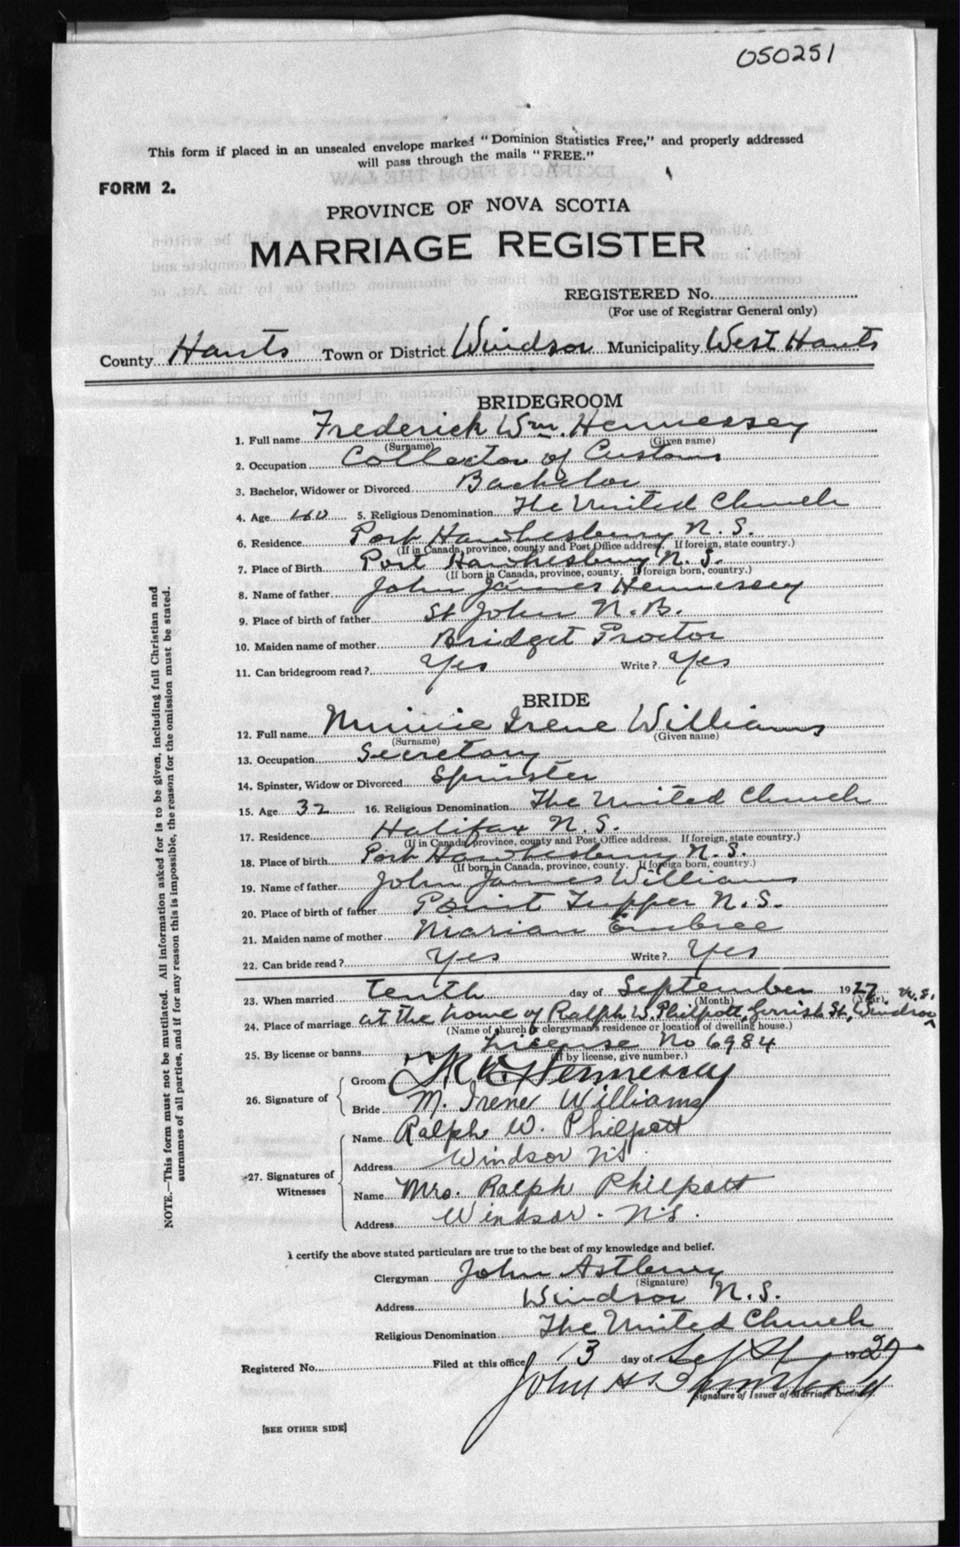 050251
This form if placed in an unsealed envelope marked "Dominion Statistics Free," and properly addressed
will pass through the mails "FREE."
FORM 2.
PROVINCE OF NOVA SCOTIA
MARRIAGE REGISTER
REGISTERED No.
(For use of Registrar General only)
County Hants Town or District Windsor Municipality West Hants
BRIDEGROOM
1. Full name Frederick Wm. Hennessey
(Surname) (Given name)
2. Occupation Collector of Customs
3. Bachelor, Widower or Divorced Bachelor
4. Age 40 5. Religious Denomination The United Church
6. Residence Port Hawkesbury N.S.
(If in Canada, province, county and Post Office address. If foreign, state country.)
7. Place of Birth Port Hawkesbury N.S.
(If born in Canada, province, county. If foreign born, country.)
8. Name of father John James Hennessey
9. Place of birth of father St John N.B.
10. Maiden name of mother Bridget Proctor
11. Can bridegroom read? Yes Write? Yes
BRIDE
12. Full name Minnie Irene Williams
(Surname) (Given name)
13. Occupation Secretary
14. Spinster, Widow or Divorced Spinster
15. Age 32 16. Religious Denomination The United Church
17. Residence Halifax N.S.
(If in Canada, province, county and Post Office address. If foreign, state country.)
18. Place of birth Port Hawkesbury N.S.
(If born in Canada, province, county. If foreign born, country.)
19. Name of father John James Williams
20. Place of birth of father Point Tupper N.S.
21. Maiden name of mother Marian Embree
22. Can bride read? Yes Write? Yes
23. When married tenth day of September 1927
(Month) (Year)
24. Place of marriage at the home of Ralph W. Philpott, Gerrish St, Windsor N.S.
(Name of church or clergyman's residence or location of dwelling house.)
25. By license or banns License No 6984
(If by license, give number.)
26. Signature of
Groom Hennessey
Bride M. Irene Williams
27. Signatures of Witnesses
Name Ralph W. Philpott
Address Windsor NS
Name Mrs. Ralph Philpott
Address Windsor. N.S.
I certify the above stated particulars are true to the best of my knowledge and belief.
Clergyman John Astbury
(Signature)
Address Windsor N.S.
Religious Denomination The United Church
Registered No. Filed at this office 13 day of Sept 1927
John
Signature of Issuer of Marriage License.
[SEE OTHER SIDE]
NOTE.—This form must not be mutilated. All information asked for is to be given, including full Christian and
surnames of all parties, and if for any reason this is impossible, the reason for the omission must be stated.